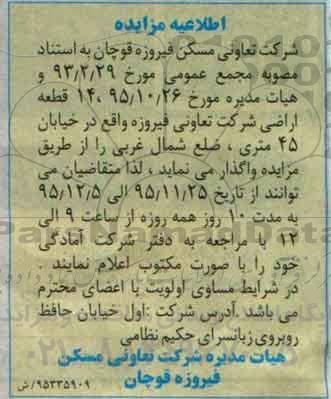 اطلاعیه مزایده
شرکت تعاونی مسکن فیروزه قوچان به استناد
مصوبه مجمع عمومی مورخ ۹۳/۲/۲۹ و
هیات مدیره مورخ ۹۵/۱۰/۲۶، ۱۴ قطعه
اراضی شرکت تعاونی فیروزه واقع در خیابان
۴۵ متری ، ضلع شمال غربی را از طریق
مزایده واگذار می نماید ، لذا متقاضیان می
توانند از تاریخ ۹۵/۱۱/۲۵ الی ۹۵/۱۲/۵
به مدت ۱۰ روز همه روزه از ساعت ۹ الی
۱۲ با مراجعه به دفتر شرکت آمادگی
خود را با صورت مکتوب اعلام نمایند .
در شرایط مساوی اولویت با اعضای محترم
می باشد .آدرس شرکت :اول خیابان حافظ
روبروی زبانسرای حکیم نظامی
هیات مدیره شرکت تعاونی مسکن
فیروزه قوچان
۹۵۳۳۵۹۰۹/ش